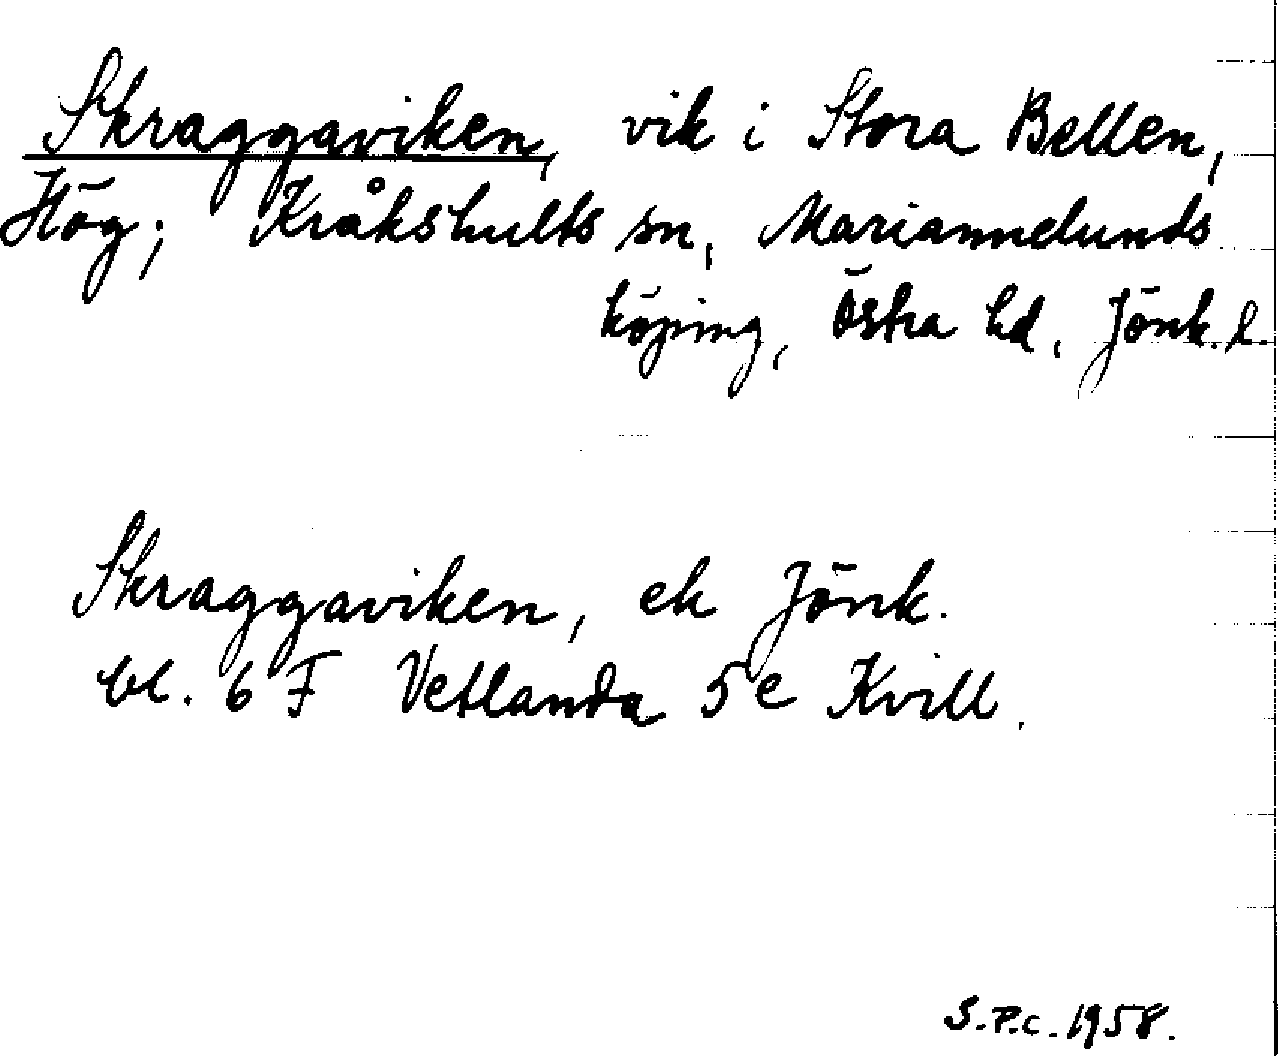 Skraggaviken, vik i Stora Bellen,
Hög; Kråkshults sn, Mariannelunds
köping, Östra hd, Jönk. l.
Skraggaviken, ek Jönk.
bl. 6 F Vetlanda 5 e Kvill.
S.P.C. 1958.